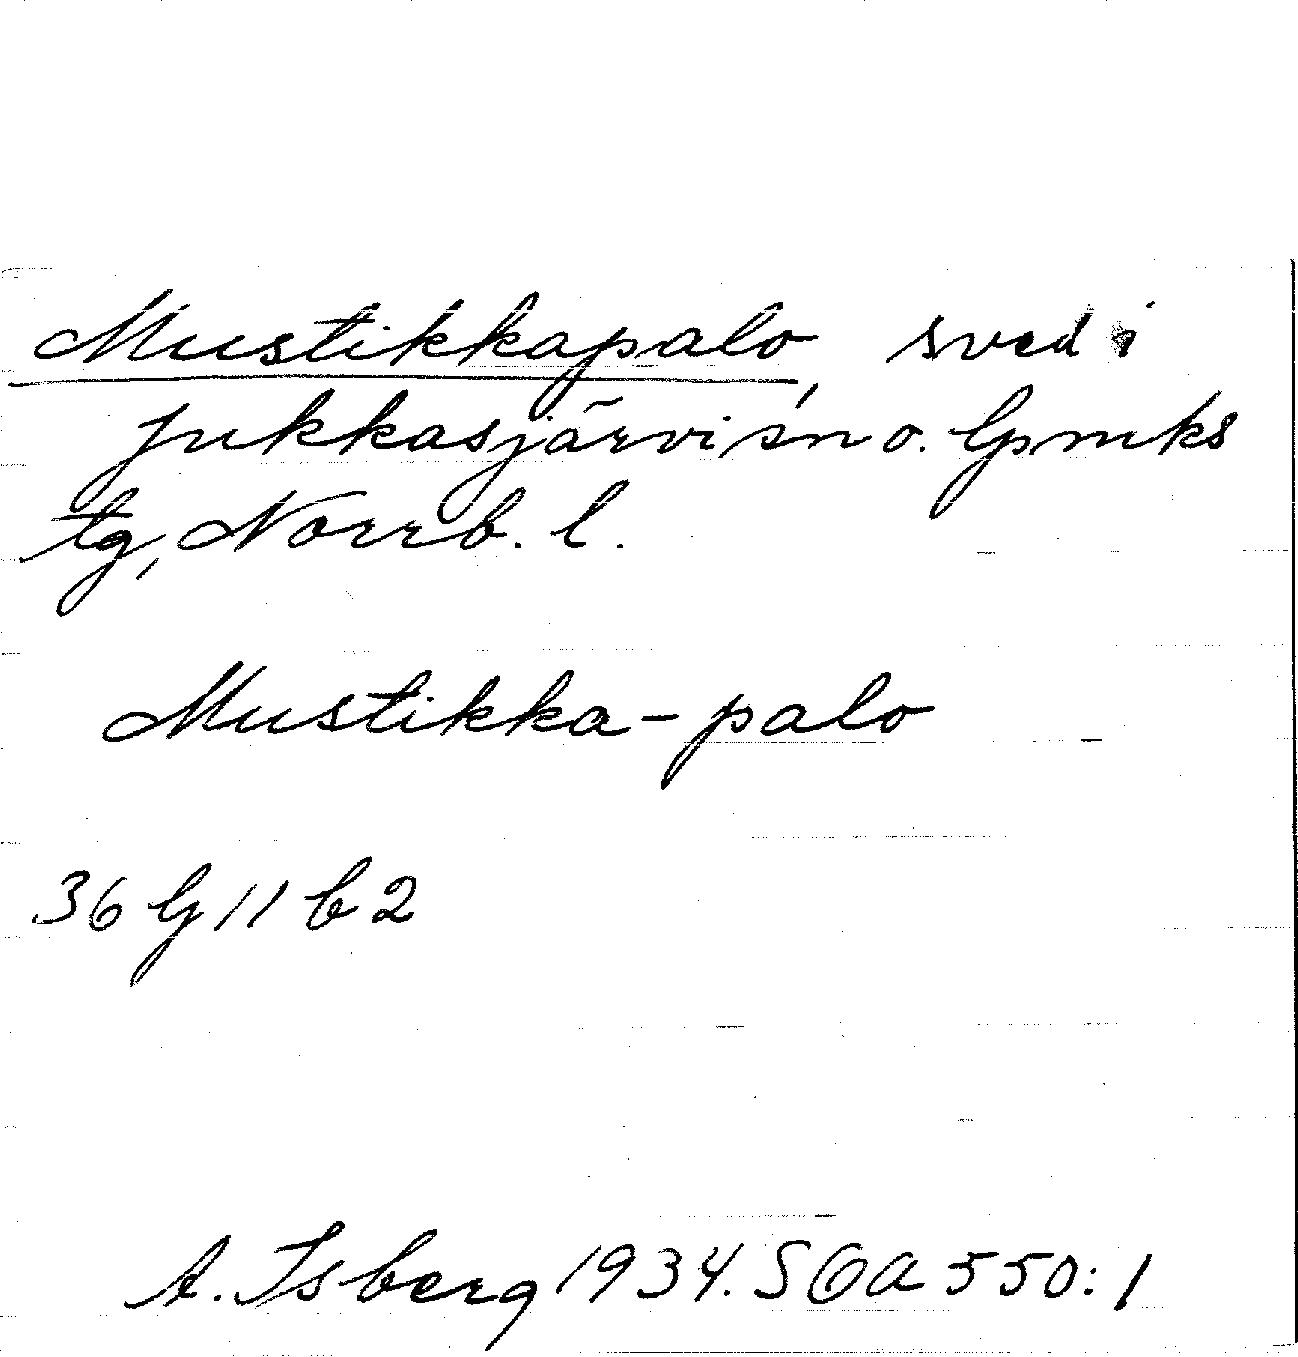 Mustikkapalo, sved i
Jukkasjärvi sn o. Gpmks
tg, Norrb. l.
Mustikka-palo
36 G 11 b 2
A. Isberg 1934. SOA 550:1